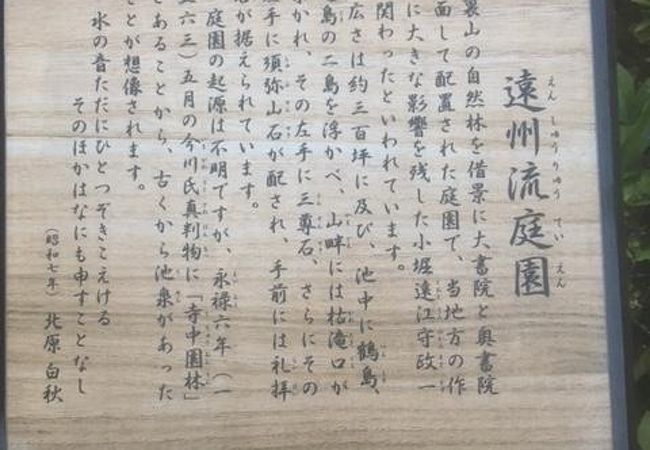 遠州流庭園
えんしゅうりゅうていえん
裏山の自然林を借景に大書院と奥書院
面して配置された庭園で、当地方の作
に大きな影響を残した小堀遠江守政一
関わったといわれています。
広さは約三百坪に及び、池中に鶴島、
島の二島を浮かべ、山畔には枯滝口が
かれ、その左手に三尊石、さらにその
左手に須弥山石が配され、手前には礼拝
が据えられています。
庭園の起源は不明ですが、永禄六年(一
五六三)五月の今川氏真判物に「寺中園林」
とあることから、古くから池泉があった
ことが想像されます。
水の音ただにひとつぞきこえける
そのほかはなにも申すことなし
(昭和七年) 北原白秋